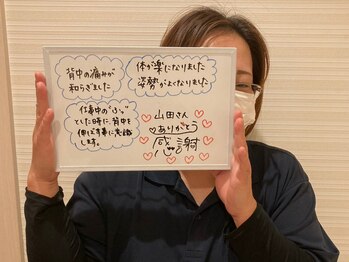 背中の痛みが
和らぎました
体が楽になりました
姿勢がよくなりました
仕事中の"ふっ"
とした時に、背中を
伸ばす事に意識
します。
山田さん
♡ありがとう
感謝